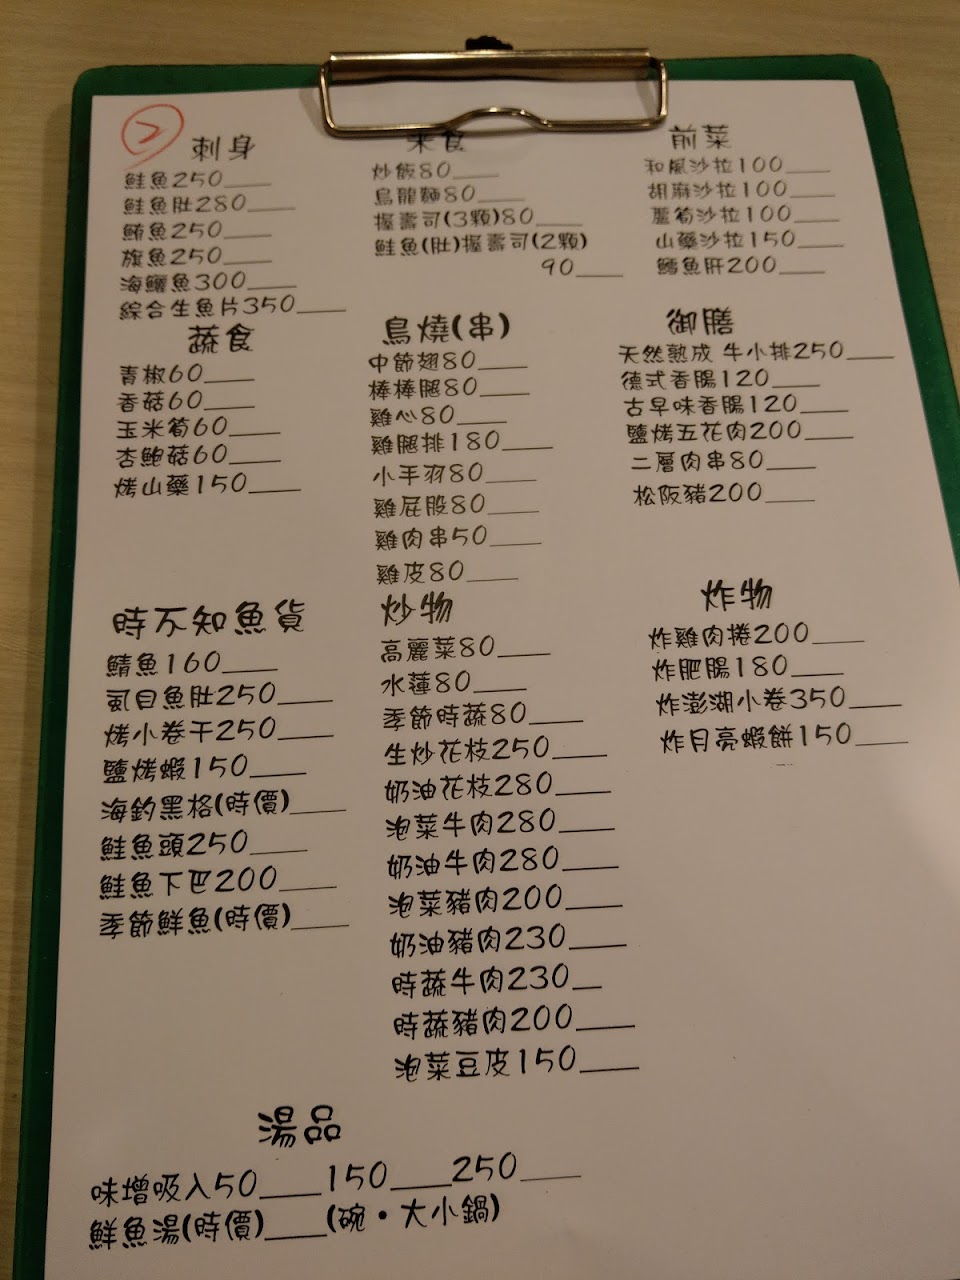 2
刺身
鮭魚250____
鮭魚肚280____
鮪魚250____
旗魚250____
海鱺魚300____
綜合生魚片350____
米食
炒飯80____
烏龍麵80____
握壽司(3顆)80____
鮭魚(肚)握壽司(2顆)
90____
前菜
和風沙拉100____
胡麻沙拉100____
蘆筍沙拉100____
山藥沙拉150____
鱈魚肝200____
蔬食
青椒60____
香菇60____
玉米筍60____
杏鮑菇60____
烤山藥150____
鳥燒(串)
中節翅80____
棒棒腿80____
雞心80____
雞腿排180____
小手羽80____
雞屁股80____
雞肉串50____
雞皮80____
御膳
天然熟成 牛小排250____
德式香腸120____
古早味香腸120____
鹽烤五花肉200____
二層肉串80____
松阪豬200____
時不知魚貨
鯖魚160____
虱目魚肚250____
烤小卷干250____
鹽烤蝦150____
海釣黑格(時價)____
鮭魚頭250____
鮭魚下巴200____
季節鮮魚(時價)____
炒物
高麗菜80____
水蓮80____
季節時蔬80____
生炒花枝250____
奶油花枝280____
泡菜牛肉280____
奶油牛肉280____
泡菜豬肉200____
奶油豬肉230____
時蔬牛肉230__
時蔬豬肉200____
泡菜豆皮150____
炸物
炸雞肉捲200____
炸肥腸180____
炸澎湖小卷350____
炸月亮蝦餅150____
湯品
味增吸入50____150____250____
鮮魚湯(時價)____(碗・大小鍋)